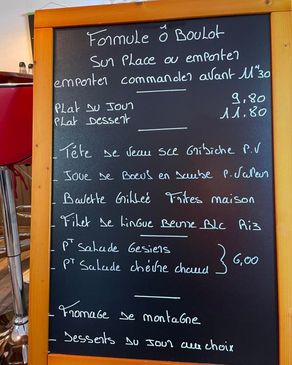 Formule ô Boulot
Sur Place ou emporter
emporter commander avant 11h30
Plat du Jour 9,80
Plat Dessert 11.80
- Tête de Veau Sce Gribiche P.V
- Joue de Boeuf en Daube P.Vapeur
- Bavette Grillée Frites maison
- Filet de Lingue Beurre Blc Riz
- PT Salade Gesiers
- PT Salade chèvre chaud } 6,00
- Fromage de montagne
- Desserts Du Jour au choix